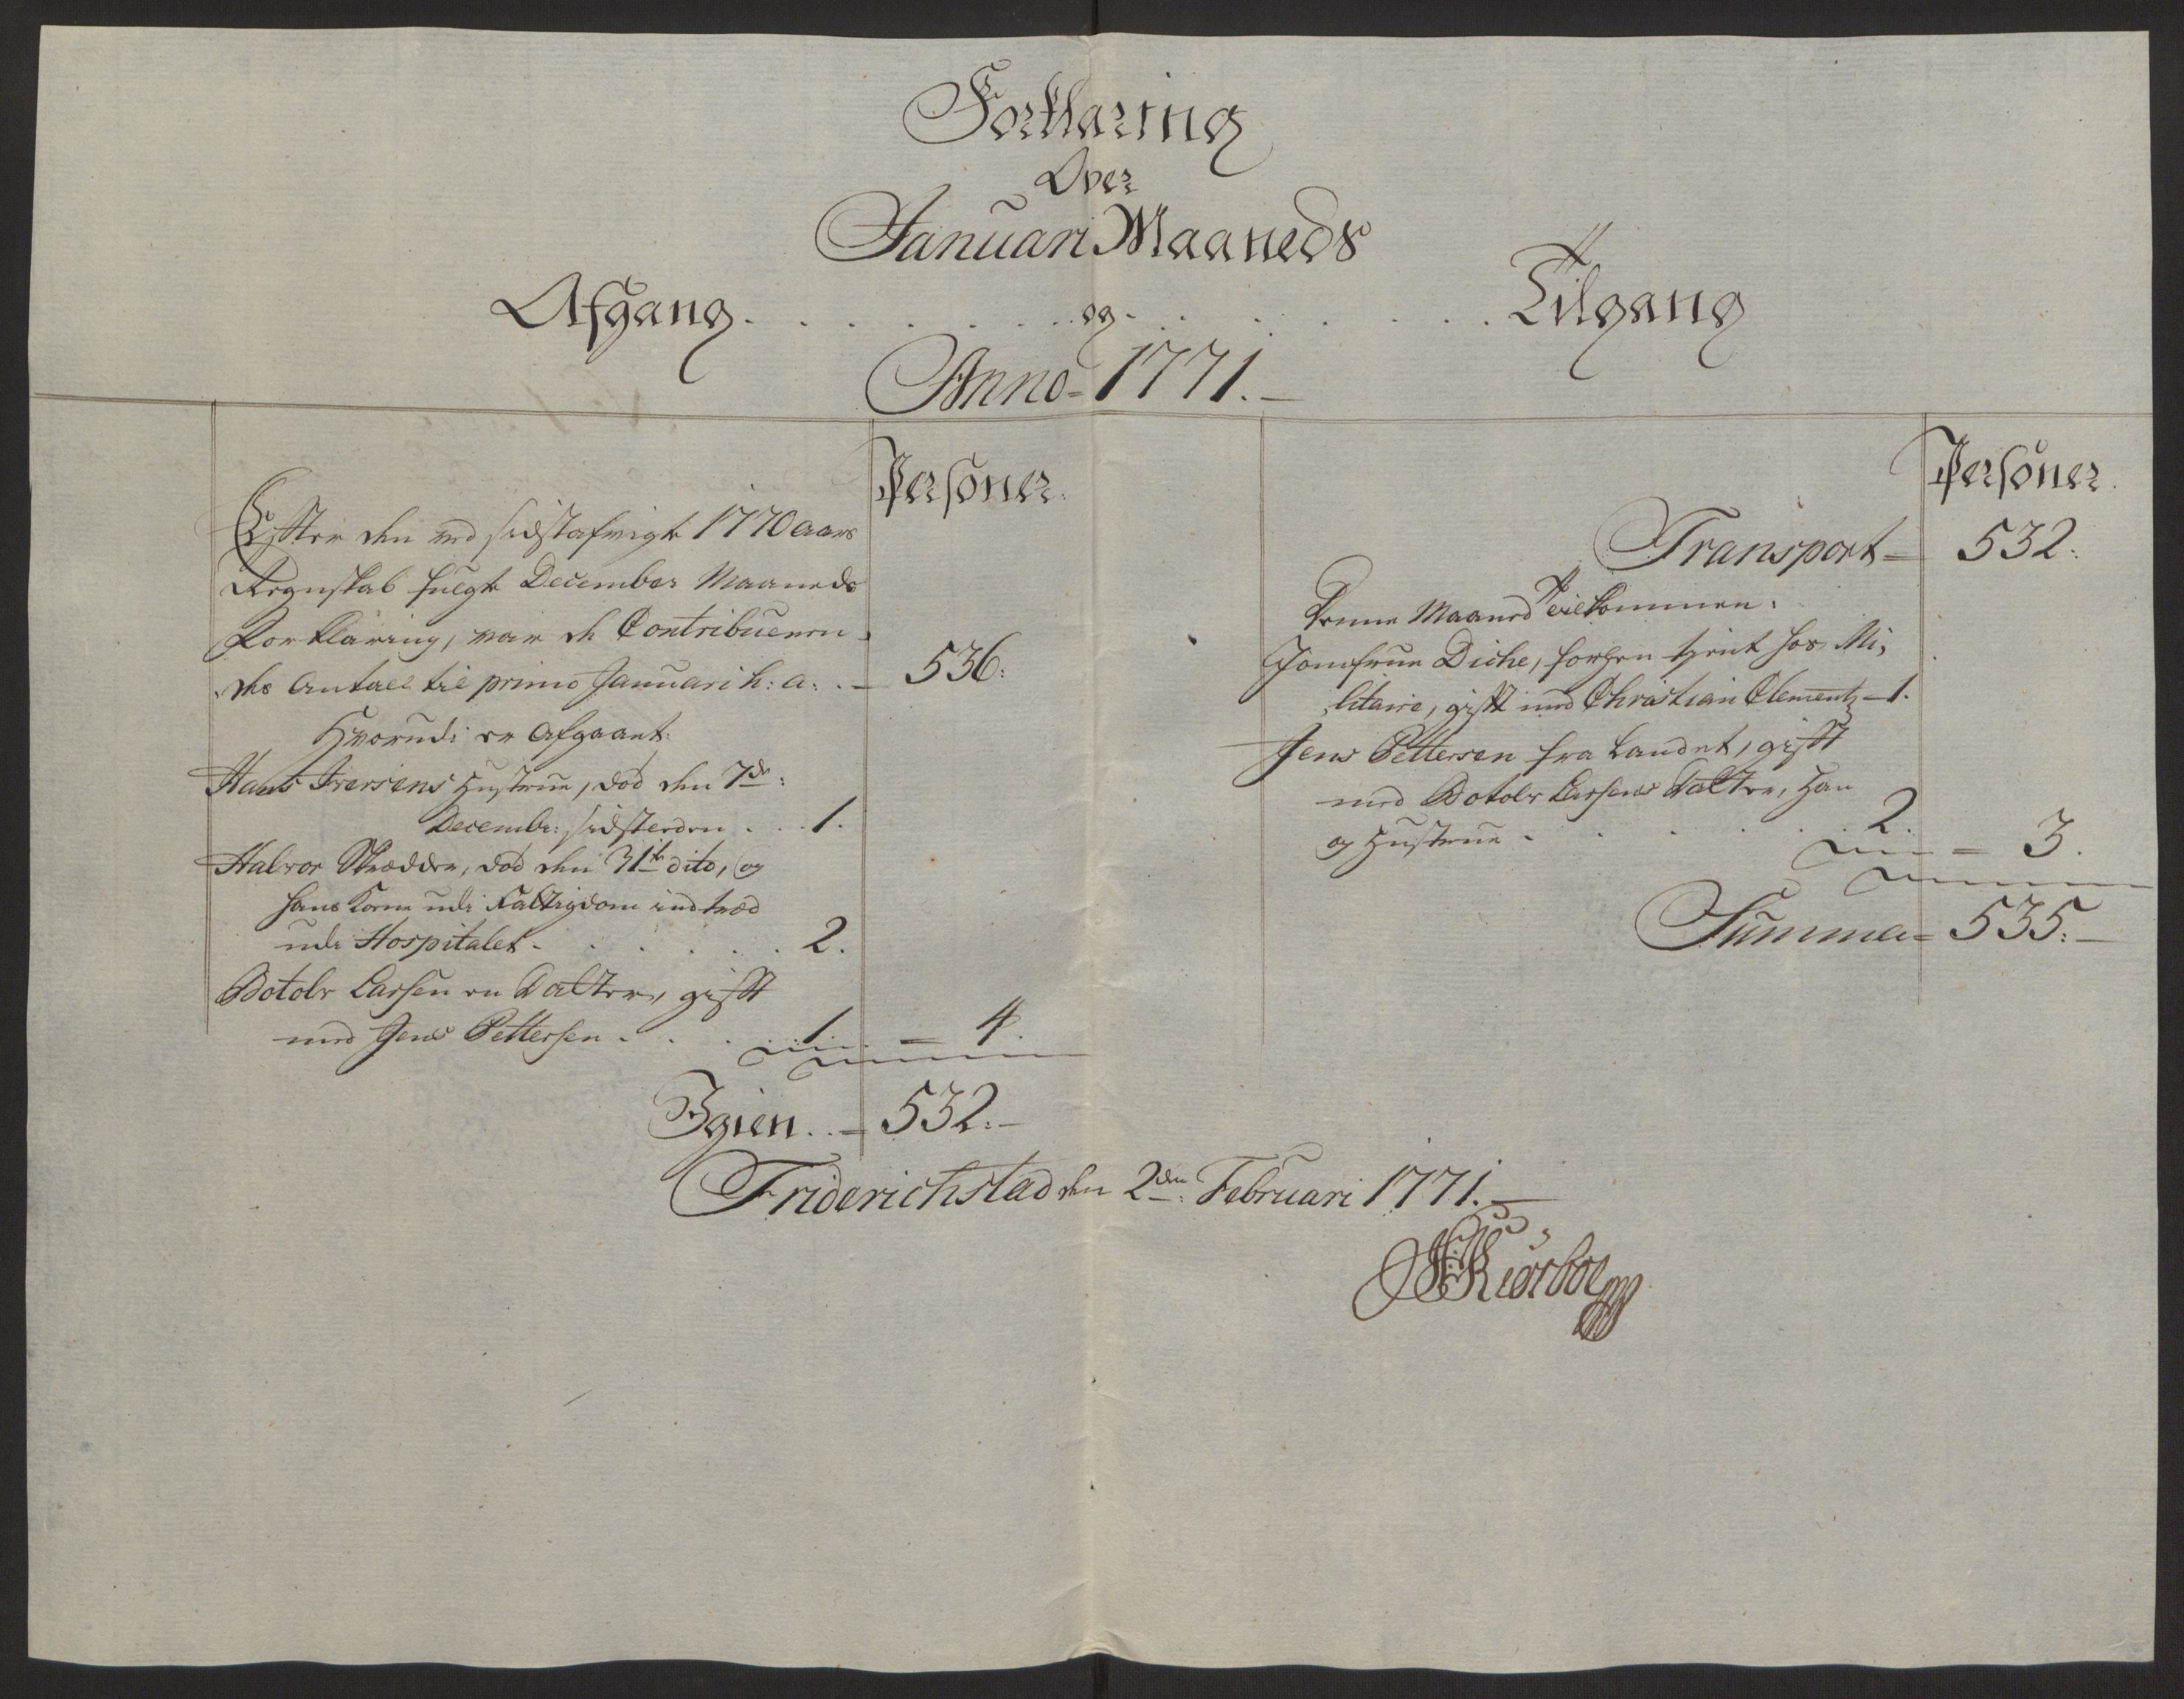 Forklaring
Over
Januari Maaneds
Afgang . . . . . . og . . . . . . Tilgang
Anno 1771.
Personer.
Effter den ved sidstafvigt 1770 aars
Regnskab fulgte December Maaneds
Forklaring, var de Contribueren-
des Antall til primo Januari h: a: . 536:
Hvorudi er Afgaaet:
Hans Iversens Hustrue, død den 7de:
Decembr: sidsterden . . . 1.
Halvor Skrædder, død den 31te dito, og
hans Kone udi Fattigdom indtræd
udi Hospitalet . . . . . . 2.
Botolv Larsen en Datter, gifft
med Jens Pettersen . . . . 1. = 4.
Igien . . = 532.
Personer.
Transport = 532.
Denne Maaned tilkommen:
Jomfrue Diche, forhen tient hos Mi-
litaire, gifft med Christian Clementz = 1.
Jens Pettersen fra Landet, gifft
med Botolv Larsens Datter, Han
og Hustrue . . . . . . 2. = 3.
Summa = 535.
Friderichstad den 2den: Februari 1771.